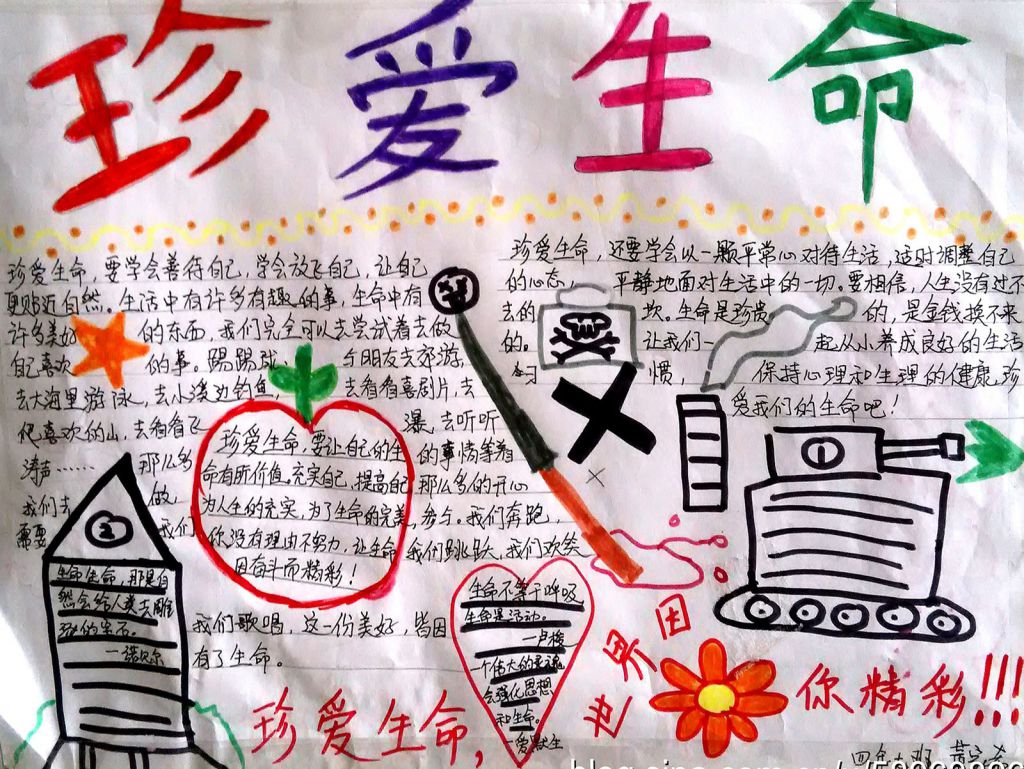 珍爱生命
珍爱生命，要学会善待自己，学会放飞自己，让自己
更贴近自然。生活中有许多有趣的事，生命中有
许多美好的东西，我们完全可以去尝试着去做
自己喜欢的事。踢踢球，与朋友去郊游，
去大海里游泳，去小溪边钓鱼，去看看喜剧片，去
爬喜欢的山，去看看飞瀑，去听听
涛声……那么多的事情等着
我们去做，那么多的开心
需要我们参与。我们奔跑，
我们跳跃，我们欢笑
我们歌唱，这一份美好，皆因
有了生命。
珍爱生命，要让自己的生
命有所价值。充实自己，提高自己
为人生的充实，为了生命的完美，
你没有理由不努力，让生命
因奋斗而精彩！
珍爱生命，还要学会以一颗平常心对待生活，适时调整自己
的心态，平静地面对生活中的一切。要相信，人生没有过不
去的坎。生命是珍贵的，是金钱换不来
的。让我们一起从小养成良好的生活
习惯，保持心理和生理的健康，珍
爱我们的生命吧！
1
2
生命生命，那是自
然会给人类去雕
琢的宝石。
—诺贝尔
生命不等于呼吸
生命是活动。
—卢梭
一个伟大的灵魂
会强化思想
和生命。
—爱默生
珍爱生命，
世界因
你精彩!!!